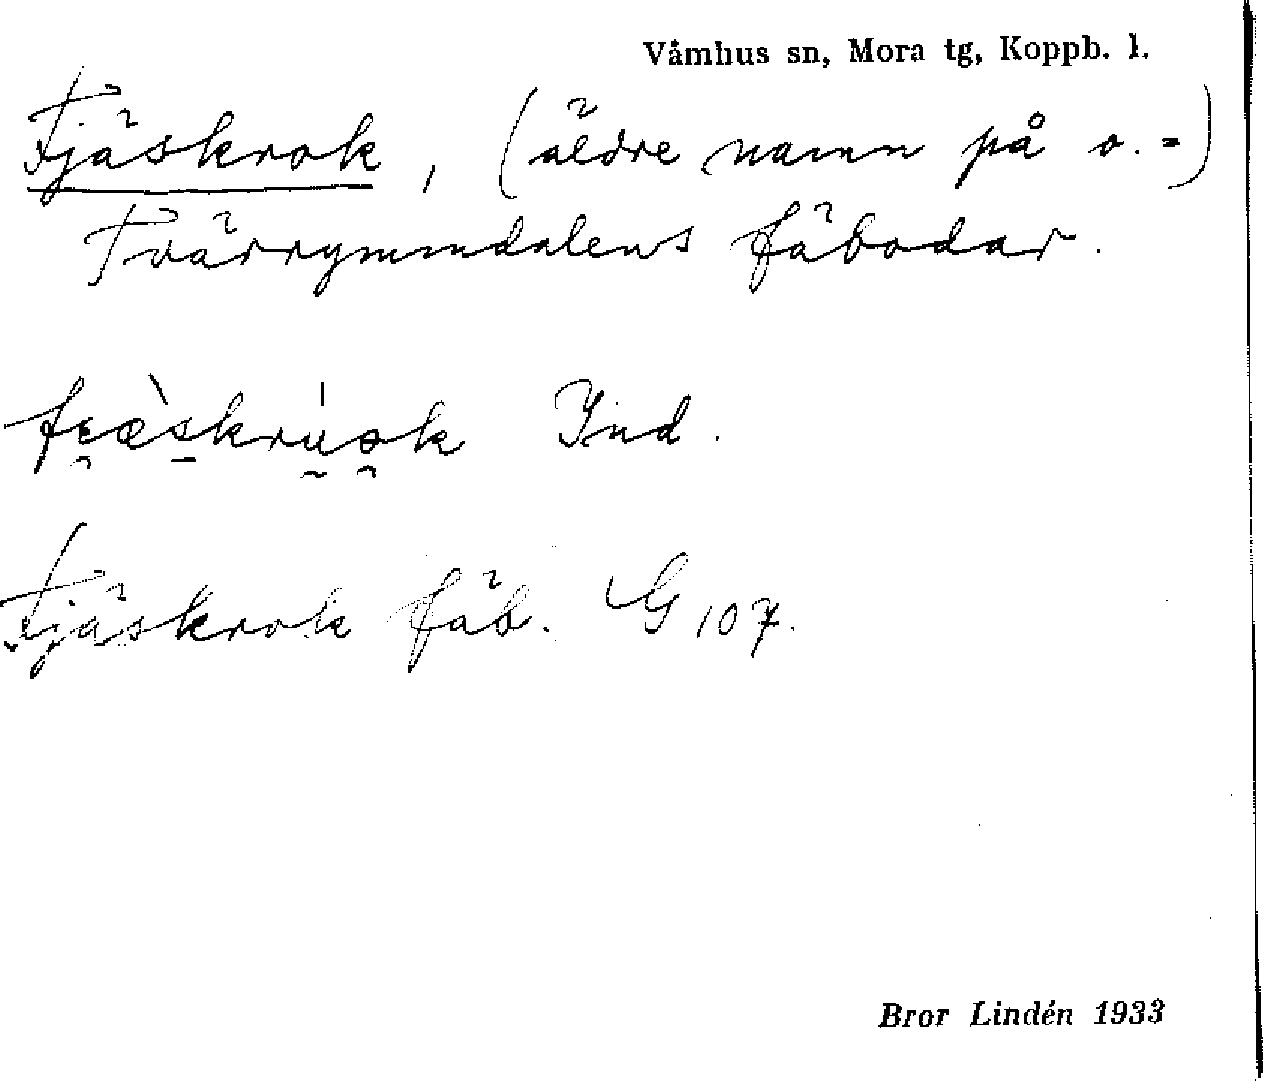 Våmhus sn, Mora tg, Koppb. l.
Fjäskrok, (äldre namn på o. =)
Tvärrymmdalens fäbodar.
Ind.
Fjäskrok fäb. G 107.
Bror Lindén 1933